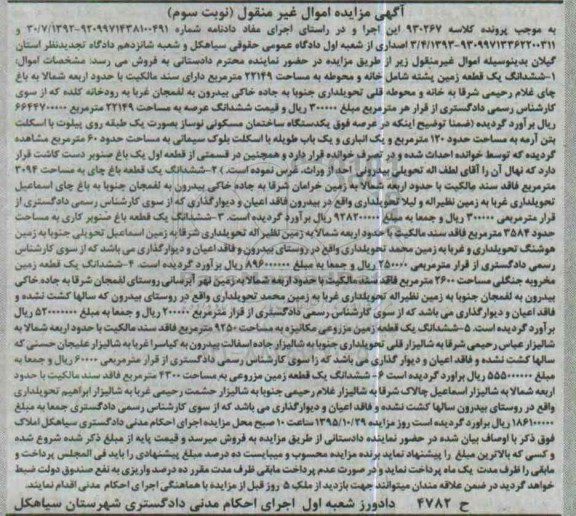 آگهی مزایده اموال غیر منقول (نوبت سوم)
به موجب پرونده کلاسه ۹۳۰۲۶۷ این اجرا و در راستای اجرای مفاد دادنامه شماره ۹۲۰۹۹۷۱۴۳۸۱۰۰۴۹۱-۳۰/۷/۱۳۹۲ و
۹۳۰۹۹۷۱۳۶۲۲۰۰۳۱۱-۳/۴/۱۳۹۳ اصداری از شعبه اول دادگاه عمومی حقوقی سیاهکل و شعبه شانزدهم دادگاه تجدیدنظر استان
گیلان بدینوسیله اموال غیرمنقول زیر از طریق مزایده در حضور نماینده محترم دادستانی به فروش می رسد: مشخصات اموال:
۱-ششدانگ یک قطعه زمین پشته شامل خانه و محوطه به مساحت ۲۲۱۴۹ مترمربع دارای سند مالکیت با حدود اربعه شمالا به باغ
چای غلام رحیمی شرقا به خانه و محوطه قلی تحویلداری جنوبا به جاده خاکی بیدرون به لفمجان غربا به رودخانه کلده که از سوی
کارشناس رسمی دادگستری از قرار هر مترمربع مبلغ ۳۰۰۰۰۰ ریال و قیمت ششدانگ عرصه به مساحت ۲۲۱۴۹ مترمربع ۶۶۴۴۷۰۰۰۰۰
ریال برآورد گردیده (ضمنا توضیح اینکه در عرصه فوق یکدستگاه ساختمان مسکونی نوساز بصورت یک طبقه روی پیلوت با اسکلت
بتن آرمه به مساحت حدود ۱۲۰ مترمربع و یک انباری و یک باب طویله با اسکلت بلوک سیمانی به مساحت حدود ۶۰ مترمربع مشاهده
گردیده که توسط خوانده احداث شده و در تصرف خوانده قرار دارد و همچنین در قسمتی از قطعه اول یک باغ صنوبر دست کاشت قرار
دارد که نهال آن را آقای لطف اله تحویلی بیدرونی احد از وراث، غرس نموده است.) ۲-ششدانگ یک قطعه باغ چای به مساحت ۳۰۹۴
مترمربع فاقد سند مالکیت با حدود اربعه شمالا به زمین خرامان شرقا به جاده خاکی بیدرون به لفمجان جنوبا به باغ چای اسماعیل
تحویلداری غربا به زمین نظیراله و لیلا تحویلداری واقع در بیدرون فاقد اعیان و دیوارگذاری که از سوی کارشناس رسمی دادگستری از
قرار مترمربعی ۳۰۰۰۰۰ ریال و جمعا به مبلغ ۹۲۸۲۰۰۰۰۰ ریال برآورد گردیده است. ۳-ششدانگ یک قطعه باغ صنوبر کاری به مساحت
حدود ۳۵۸۴ مترمربع فاقد سند مالکیت با حدود اربعه شمالا به زمین نظیر اله تحویلداری شرقا به زمین اسماعیل تحویلی جنوبا به زمین
هوشنگ تحویلداری و غربا به زمین محمد تحویلداری واقع در روستای بیدرون و فاقد اعیان و دیوارگذاری می باشد که از سوی کارشناس
رسمی دادگستری از قرار مترمربعی ۲۵۰۰۰۰ ریال و جمعا به مبلغ ۸۹۶۰۰۰۰۰۰ ریال برآورد گردیده است. ۴-ششدانگ یک قطعه زمین
مخروبه جنگلی مساحت ۲۶۰۰ مترمربع فاقد سند مالکیت با حدود اربعه شمالا به زمین نهر آبرسانی روستای لفمجان شرقا به جاده خاکی
بیدرون به لفمجان جنوبا به زمین نظیراله تحویلداری غربا به زمین محمد تحویلداری واقع در روستای بیدرون که سالها کشت نشده و
فاقد اعیان و دیوارگذاری می باشد که از سوی کارشناس رسمی دادگستری از قرار مترمربعی ۲۰۰۰۰۰ ریال و جمعا به مبلغ ۵۲۰۰۰۰۰۰۰ ریال
برآورد گردیده است. ۵-ششدانگ یک قطعه زمین مزروعی مکانیزه به مساحت ۹۲۵۰ مترمربع فاقد سند مالکیت با حدود اربعه شمالا به
شالیزار عباس رحیمی شرقا به شالیزار قلی تحویلداری جنوبا به شالیزار جاده اسفالت بیدرون به کیاسرا غربا به شالیزار علیجان حسنی که
سالها کشت نشده و فاقد اعیان و دیوار گذاری می باشد که از سوی کارشناس رسمی دادگستری از قرار مترمربعی ۶۰۰۰۰ ریال و جمعا به
مبلغ ۵۵۵۰۰۰۰۰۰ ریال برآورد گردیده است ۶-ششدانگ یک قطعه زمین مزروعی به مساحت ۴۳۰۰ مترمربع فاقد سند مالکیت با حدود
اربعه شمالا به شالیزار اسماعیل چالاک شرقا به شالیزار غلام رحیمی جنوبا به شالیزار حشمت رحیمی غربا به شالیزار ابراهیم تحویلداری
واقع در روستای بیدرون سالها کشت نشده و فاقد اعیان و دیوارگذاری می باشد که از سوی کارشناس رسمی دادگستری جمعا به مبلغ
۱۸۶۱۰۰۰۰۰ ریال برآورد گردیده است روز مزایده ۱۳۹۵/۱۰/۲۹ ساعت ۱۰ صبح محل مزایده اجرای احکام مدنی دادگستری سیاهکل املاک
فوق ذکر با اوصاف بیان شده در حضور نماینده دادستانی از طریق مزایده به فروش میرسد و قیمت پایه از مبلغ ذکر شده شروع شده
و کسی که بالاترین مبلغ را پیشنهاد نماید برنده مزایده محسوب و میبایست ده درصد مبلغ پیشنهادی را باید فی المجلس پرداخت و
مابقی را ظرف مدت یک ماه پرداخت نماید و در صورت عدم پرداخت مابقی ظرف مدت مقرر ده درصد واریزی به نفع صندوق دولت ضبط
خواهد گردید در ضمن علاقه مندان میتوانند جهت بازدید از ملک ۵ روز قبل از مزایده با هماهنگی اجرای احکام مدنی اقدام نمایند.
ح ۴۷۸۲ دادورز شعبه اول اجرای احکام مدنی دادگستری شهرستان سیاهکل